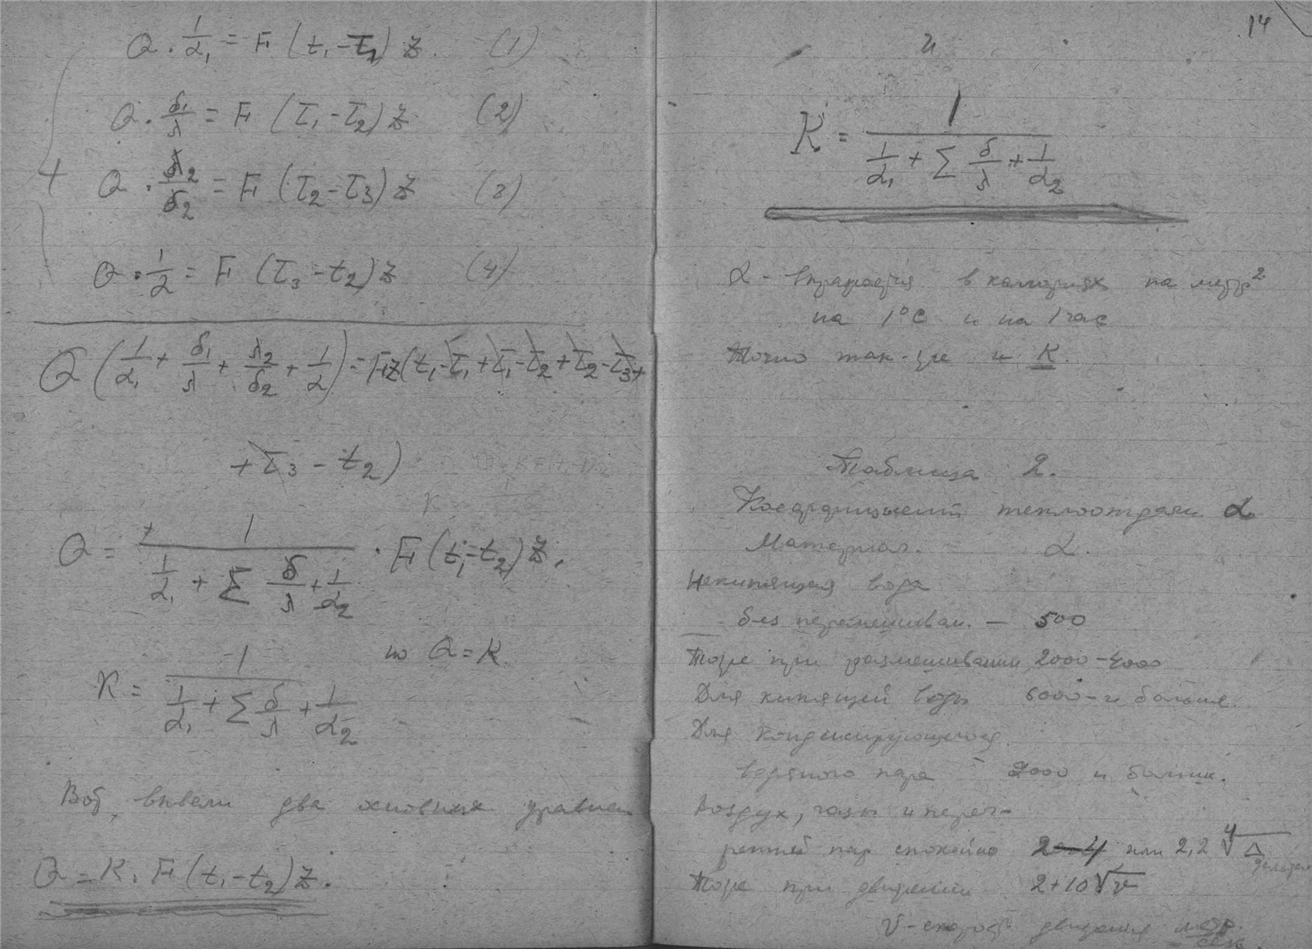 Q · 1/α₁ = F (t₁ - τ₁) z. (1)
Q · δ₁/λ = F (τ₁ - τ₂) z (2)
+ Q · λ₂/δ₂ = F (τ₂ - τ₃) z (3)
Q · 1/α = F (τ₃ - t₂) z (4)
Q (1/α₁ + δ₁/λ + λ₂/δ₂ + 1/α) = Fz (t₁ - τ₁ + τ₁ - τ₂ + τ₂ - τ₃ +
+ τ₃ - t₂)
Q = 1/(1/α₁ + Σ δ/λ + 1/α₂) · F (t₁ - t₂) z.
но Q = K
K = 1/(1/α₁ + Σ δ/λ + 1/α₂)
Вот, вывели два основных уравнен
Q = K · F (t₁ - t₂) z.
14
и
K = 1/(1/α₁ + Σ δ/λ + 1/α₂)
α - в калориях на метр²
на 1°C и на 1 час
Точно так-же и K.
Таблица 2.
Коэффициент теплоотдачи α
Материал. α.
Некипящая вода
без перемешиван. — 500
Тоже при размешивании 2000-4000
Для кипящей воды 6000-и больше.
Для конденсирующегося
водяного пара - 9000 и больше.
Воздух, газы и перег-
ретый пар спокойно 2-4 или 2,2 ⁴√Δ
Тоже при движении 2+10√v
v - скорость движения метр/